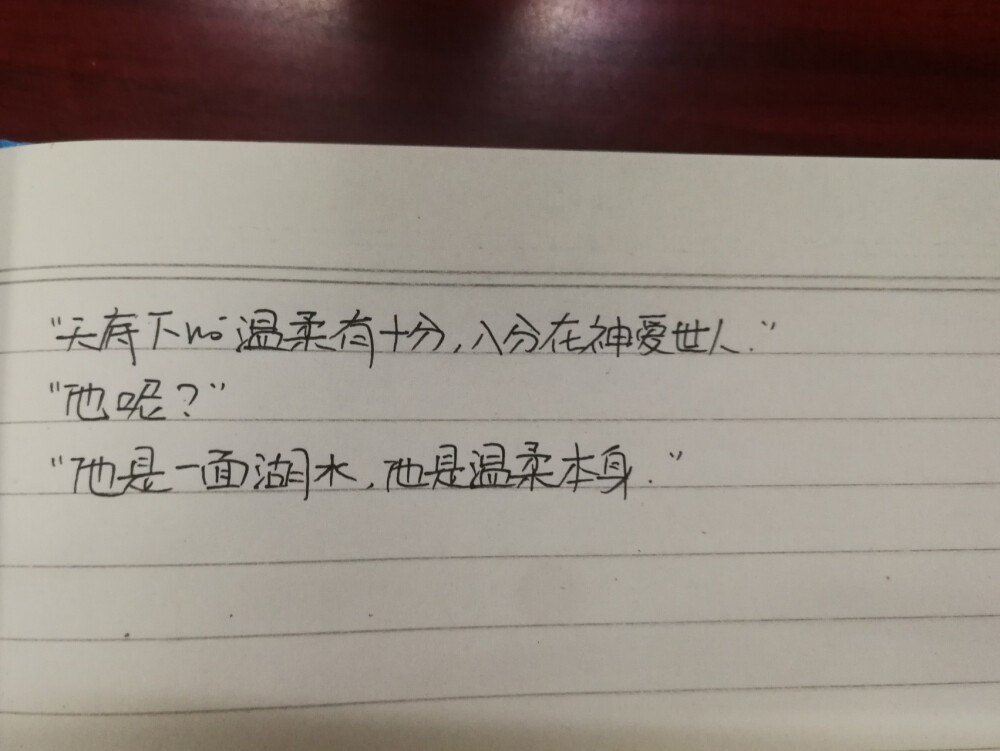 "天府下的温柔有十分,八分在神爱世人."
"他呢?"
"他是一面湖水,他是温柔本身."